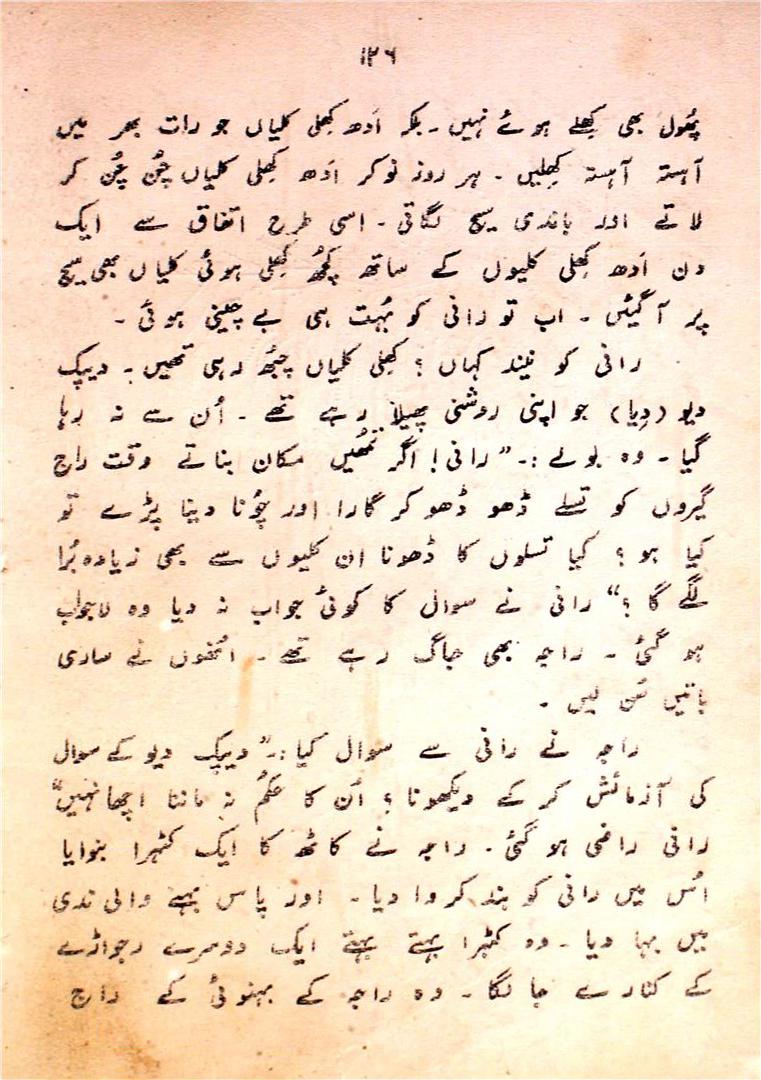 ۱۲۶
پھُول بھی کھِلے ہوئے نہیں ۔ بلکہ اَدھ کھِلی کلیاں جو رات بھر میں
آہستہ آہستہ کھِلیں ۔ ہر روز نوکر اَدھ کھِلی کلیاں چُن چُن کر
لاتے اور باندی سیج لگاتی ۔ اسی طرح اتفاق سے ایک
دن اَدھ کھِلی کلیوں کے ساتھ کچُھ کھِلی ہوئی کلیاں بھی سیج
پر آگئیں ۔ اب تو رانی کو بُہت ہی بے چینی ہوئی ۔
رانی کو نیند کہاں ؟ کھِلی کلیاں چبُھ رہی تھیں ۔ دیپک
دیو (دِیا) جو اپنی روشنی پھیلا رہے تھے ۔ اُن سے نہ رہا
گیا ۔ وہ بولے :۔ ”رانی! اگر تمُھیں مکان بناتے وقت راج
گیروں کو تسلے ڈھو ڈھو کر گارا اور چوُنا دینا پڑے تو
کیا ہو ؟ کیا تسلوں کا ڈھونا ان کلیوں سے بھی زیادہ بُرا
لگے گا ؟“ رانی نے سوال کا کوئی جواب نہ دیا وہ لاجواب
ہو گئی ۔ راجہ بھی جاگ رہے تھے ۔ اُنھوں نے ساری
باتیں سُن لیں ۔
راجہ نے رانی سے سوال کیا :۔ ”دیپک دیو کے سوال
کی آزمائش کر کے دیکھونا ؟ اُن کا حکمُ نہ ماننا اچھا نہیں“
رانی راضی ہو گئی ۔ راجہ نے کاٹھ کا ایک کٹہرا بنوایا
اُس میں رانی کو بند کروا دیا ۔ اور پاس بہنے والی ندی
میں بہا دیا ۔ وہ کٹہرا بہتے بہتے ایک دوسرے رجواڑے
کے کنارے جا لگا ۔ وہ راجہ کے بہنوئی کے راج